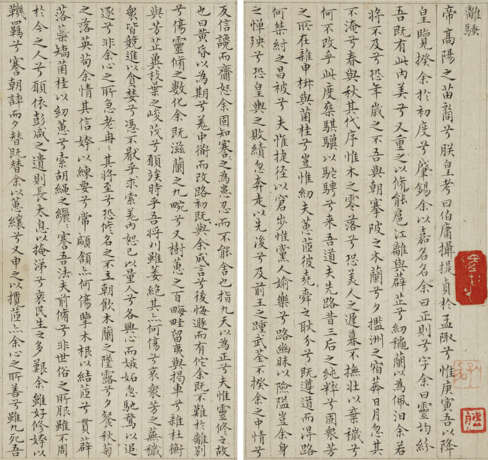 離騷
帝高陽之苗裔兮朕皇考曰伯庸攝提貞於孟陬兮惟庚寅吾以降
皇覽揆余於初度兮肇錫余以嘉名名余曰正則兮字余曰靈均紛
吾既有此內美兮又重之以脩能扈江離與辟芷兮紉秋蘭以為佩汨余若
將不及兮恐年歲之不吾與朝搴阰之木蘭兮夕攬洲之宿莽日月忽其
不淹兮春與秋其代序惟木之零落兮恐美人之遲暮不撫壯以棄穢兮
何不改乎此度乘騏驥以馳騁兮來吾道夫先路昔三后之純粹兮固衆芳
之所在雜申椒與菌桂兮豈惟紉夫蕙茝彼堯舜之耿介兮既遵道而得路
何桀紂之昌被兮夫惟捷徑以窘步惟黨人媮樂兮路幽昧以險隘豈余身
之憚殃兮恐皇輿之敗績忽奔走以先後兮及前王之踵武荃不揆余之中情兮
反信讒而齌怒余固知謇之為患忍而不能舍也指九天以為正兮夫惟靈脩之故
也曰黃昏以為期兮羌中道而改路初既與余成言兮後悔遁而有佗余既不難於離別
兮傷靈脩之數化余既滋蘭之九畹兮又樹蕙之百畮畦留夷與揭車兮雜杜衡
與芳芷冀枝葉之峻茂兮願竢時乎吾將刈雖萎絕其亦何傷兮哀衆芳之蕪穢
衆皆競進以貪婪兮憑不猒乎求索羌內恕己以量人兮各興心而嫉妬忽馳騖以追
逐兮非余心之所急老冉其將至兮恐脩名之不立朝飲木蘭之墜露兮夕餐秋菊
之落英苟余情其信姱以練要兮常顑頷亦何傷擥木根以結茝兮貫薜
落蘂矯菌桂以紉蕙兮索胡繩之纚謇吾法夫前脩兮非世俗之所服雖不周
於今之人兮願依彭咸之遺則長太息以掩涕兮哀民生之多艱余雖好脩姱以
鞿羈兮謇朝誶而夕替既替余以蕙纕兮又申之以攬茝亦余心之所善兮雖九死吾